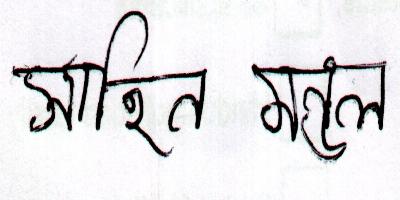 সাহিন মন্ডল